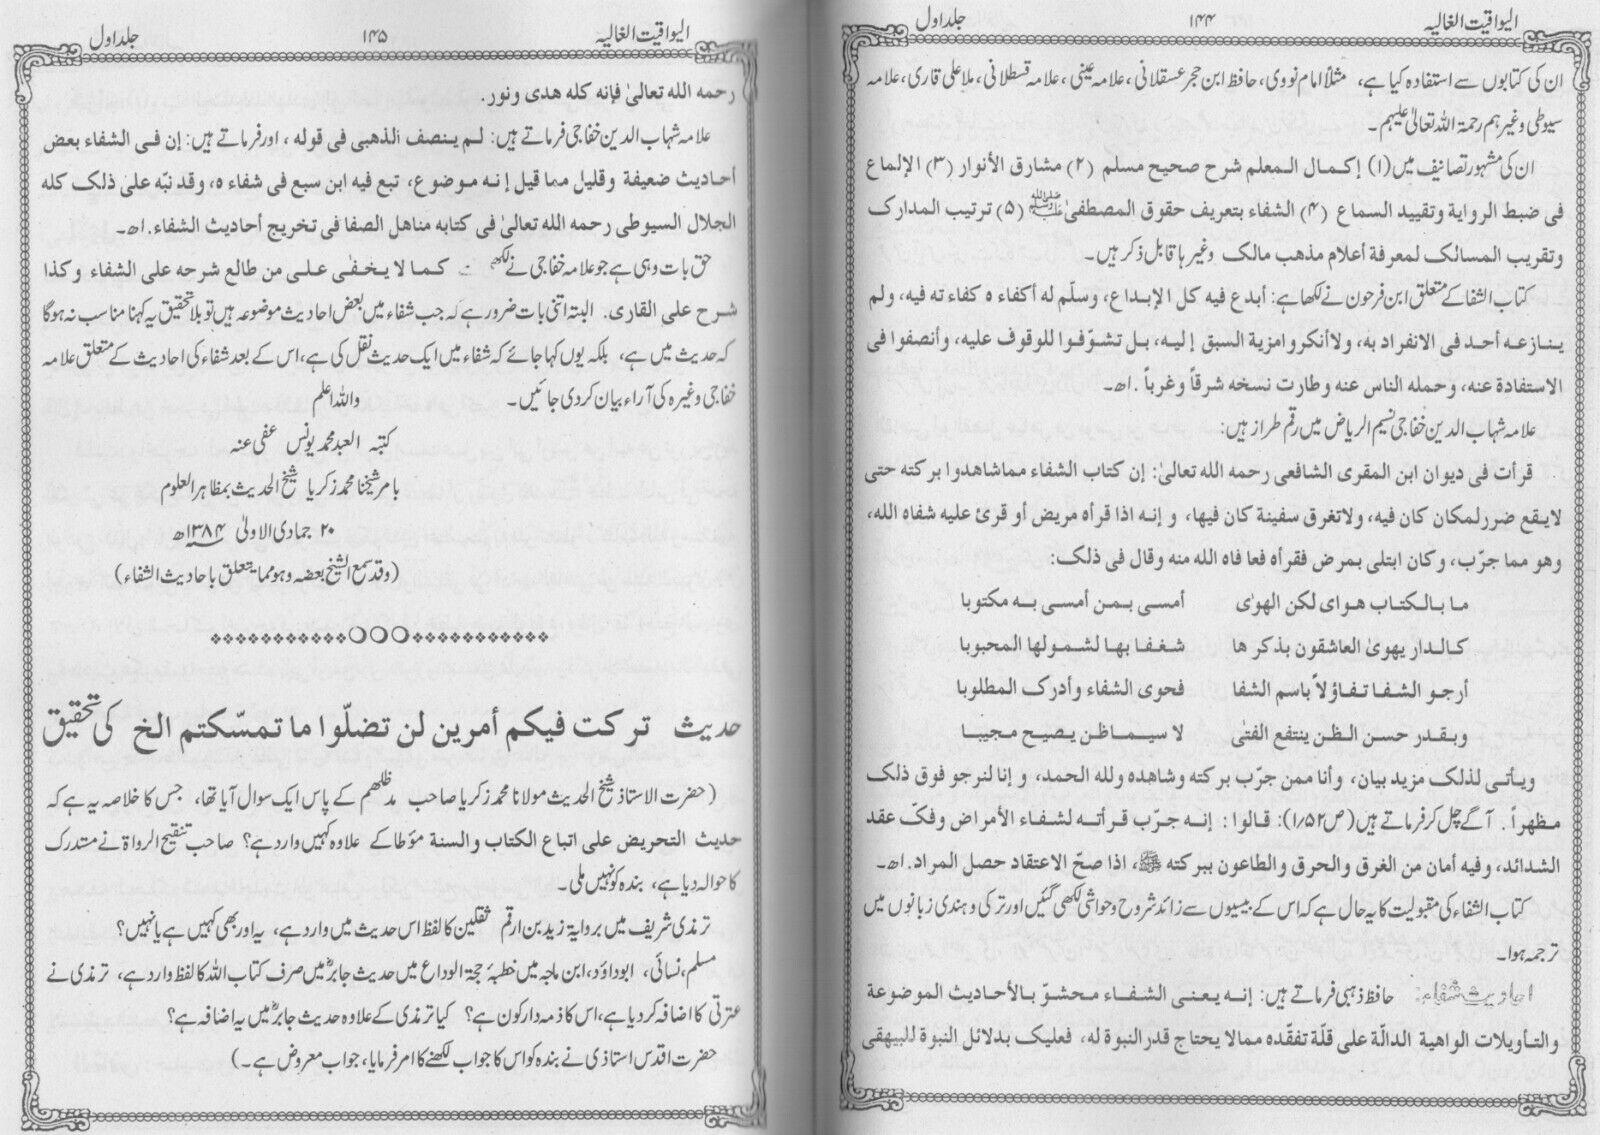 الیواقیت الغالیہ ۱۴۴ جلد اول
ان کی کتابوں سے استفادہ کیا ہے، مثلاً امام نووی، حافظ ابن حجر عسقلانی، علامہ عینی، علامہ قسطلانی، ملا علی قاری، علامہ
سیوطی وغیرہم رحمۃ اللہ تعالیٰ علیہم۔
ان کی مشہور تصانیف میں (۱) إکمال المعلم شرح صحیح مسلم (۲) مشارق الأنوار (۳) الإلماع
فی ضبط الروایة وتقیید السماع (۴) الشفاء بتعریف حقوق المصطفیٰ ﷺ (۵) ترتیب المدارک
وتقریب المسالک لمعرفة أعلام مذهب مالک وغیرہا قابل ذکر ہیں۔
کتاب الشفا کے متعلق ابن فرحون نے لکھا ہے: أبدع فیه کل الإبداع، وسلّم له أکفاء ه کفاء ته فیه، ولم
ینازعه أحد فی الانفراد به، ولا أنکروا مزیة السبق إلیه، بل تشوّفوا للوقوف علیه، وأنصفوا فی
الاستفادة عنه، وحمله الناس عنه وطارت نسخه شرقاً وغرباً .اھ۔
علامہ شہاب الدین خفاجی نسیم الریاض میں رقم طراز ہیں:
قرأت فی دیوان ابن المقری الشافعی رحمه الله تعالیٰ: إن کتاب الشفاء مما شاهدوا برکته حتی
لایقع ضرر لمکان کان فیه، ولاتغرق سفینة کان فیها، و إنه اذا قرأه مریض أو قرئ علیه شفاه الله،
وهو مما جرّب، وکان ابتلی بمرض فقرأه فعا فاه الله منه وقال فی ذلک:
ما بالکتاب هوای لکن الهوٰی أمسی بمن أمسی به مکتوبا
کالدار یهویٰ العاشقون بذکر ها شغفا بها لشمولها المحبوبا
أرجو الشفا تفاؤلاً باسم الشفا فحوی الشفاء وأدرک المطلوبا
وبقدر حسن الظن ینتفع الفتیٰ لا سیما ظن یصیح مجیبا
ویأتی لذلک مزید بیان، وأنا ممن جرّب برکته وشاهده ولله الحمد، و إنا لنرجو فوق ذلک
مظهراً. آگے چل کر فرماتے ہیں (ص۱/۵۲): قالوا: إنه جرّب قرأته لشفاء الأمراض وفکّ عقد
الشدائد، وفیه أمان من الغرق والحرق والطاعون ببرکته ﷺ، اذا صحّ الاعتقاد حصل المراد .اھ۔
کتاب الشفاء کی مقبولیت کا یہ حال ہے کہ اس کے بیسیوں سے زائد شروح وحواشی لکھی گئیں اور ترکی وہندی زبانوں میں
ترجمہ ہوا۔
احادیث شفاء: حافظ ذہبی فرماتے ہیں: إنه یعنی الشفاء محشوّ بالأحادیث الموضوعة
والتأویلات الواهیة الدالّة علی قلّة تفقّده مما لا یحتاج قدر النبوة له، فعلیک بدلائل النبوة للبیهقی
الیواقیت الغالیہ ۱۴۵ جلد اول
رحمه الله تعالیٰ فإنه کله هدی ونور.
علامہ شہاب الدین خفاجی فرماتے ہیں: لم ینصف الذهبی فی قوله ، اور فرماتے ہیں: إن فی الشفاء بعض
أحادیث ضعیفة وقلیل مما قیل إنه موضوع، تبع فیه ابن سبع فی شفاء ه، وقد نبّه علیٰ ذلک کله
الجلال السیوطی رحمه الله تعالیٰ فی کتابه مناهل الصفا فی تخریج أحادیث الشفاء .اھ۔
حق بات وہی ہے جو علامہ خفاجی نے کما لا یخفی علی من طالع شرحه علی الشفاء وکذا
شرح علی القاری. البتہ اتنی بات ضرور ہے کہ جب شفاء میں بعض احادیث موضوعہ ہیں تو بلا تحقیق یہ کہنا مناسب نہ ہوگا
کہ حدیث میں ہے، بلکہ یوں کہا جائے کہ شفاء میں ایک حدیث نقل کی ہے، اس کے بعد شفاء کی احادیث کے متعلق علامہ
خفاجی وغیرہ کی آراء بیان کر دی جائیں۔ واللہ اعلم
کتبہ العبد محمد یونس عفی عنہ
بامر شیخنا محمد زکریا شیخ الحدیث بمظاہر العلوم
۲۰ جمادی الاولیٰ ۱۳۸۴ھ
(وقد سمع الشیخ بعضہ وہو مما یتعلق باحادیث الشفاء)
حدیث ترکت فیکم أمرین لن تضلّوا ما تمسّکتم الخ کی تحقیق
(حضرت الاستاذ شیخ الحدیث مولانا محمد زکریا صاحب مدظلہم کے پاس ایک سوال آیا تھا، جس کا خلاصہ یہ ہے کہ
حدیث التحریض علی اتباع الکتاب والسنة مؤطا کے علاوہ کہیں وارد ہے؟ صاحب تنقیح الرواۃ نے مستدرک
کا حوالہ دیا ہے، بندہ کو نہیں ملی۔
ترمذی شریف میں بروایۃ زید بن ارقم ثقلین کا لفظ اس حدیث میں وارد ہے، یہ اور بھی کہیں ہے یا نہیں؟
مسلم، نسائی، ابوداؤد، ابن ماجہ میں خطبۂ حجۃ الوداع میں حدیث جابرؓ میں صرف کتاب اللہ کا لفظ وارد ہے، ترمذی نے
عترتی کا اضافہ کر دیا ہے، اس کا ذمہ دار کون ہے؟ کیا ترمذی کے علاوہ حدیث جابرؓ میں یہ اضافہ ہے؟
حضرت اقدس استاذی نے بندہ کو اس کا جواب لکھنے کا امر فرمایا، جواب معروض ہے۔)